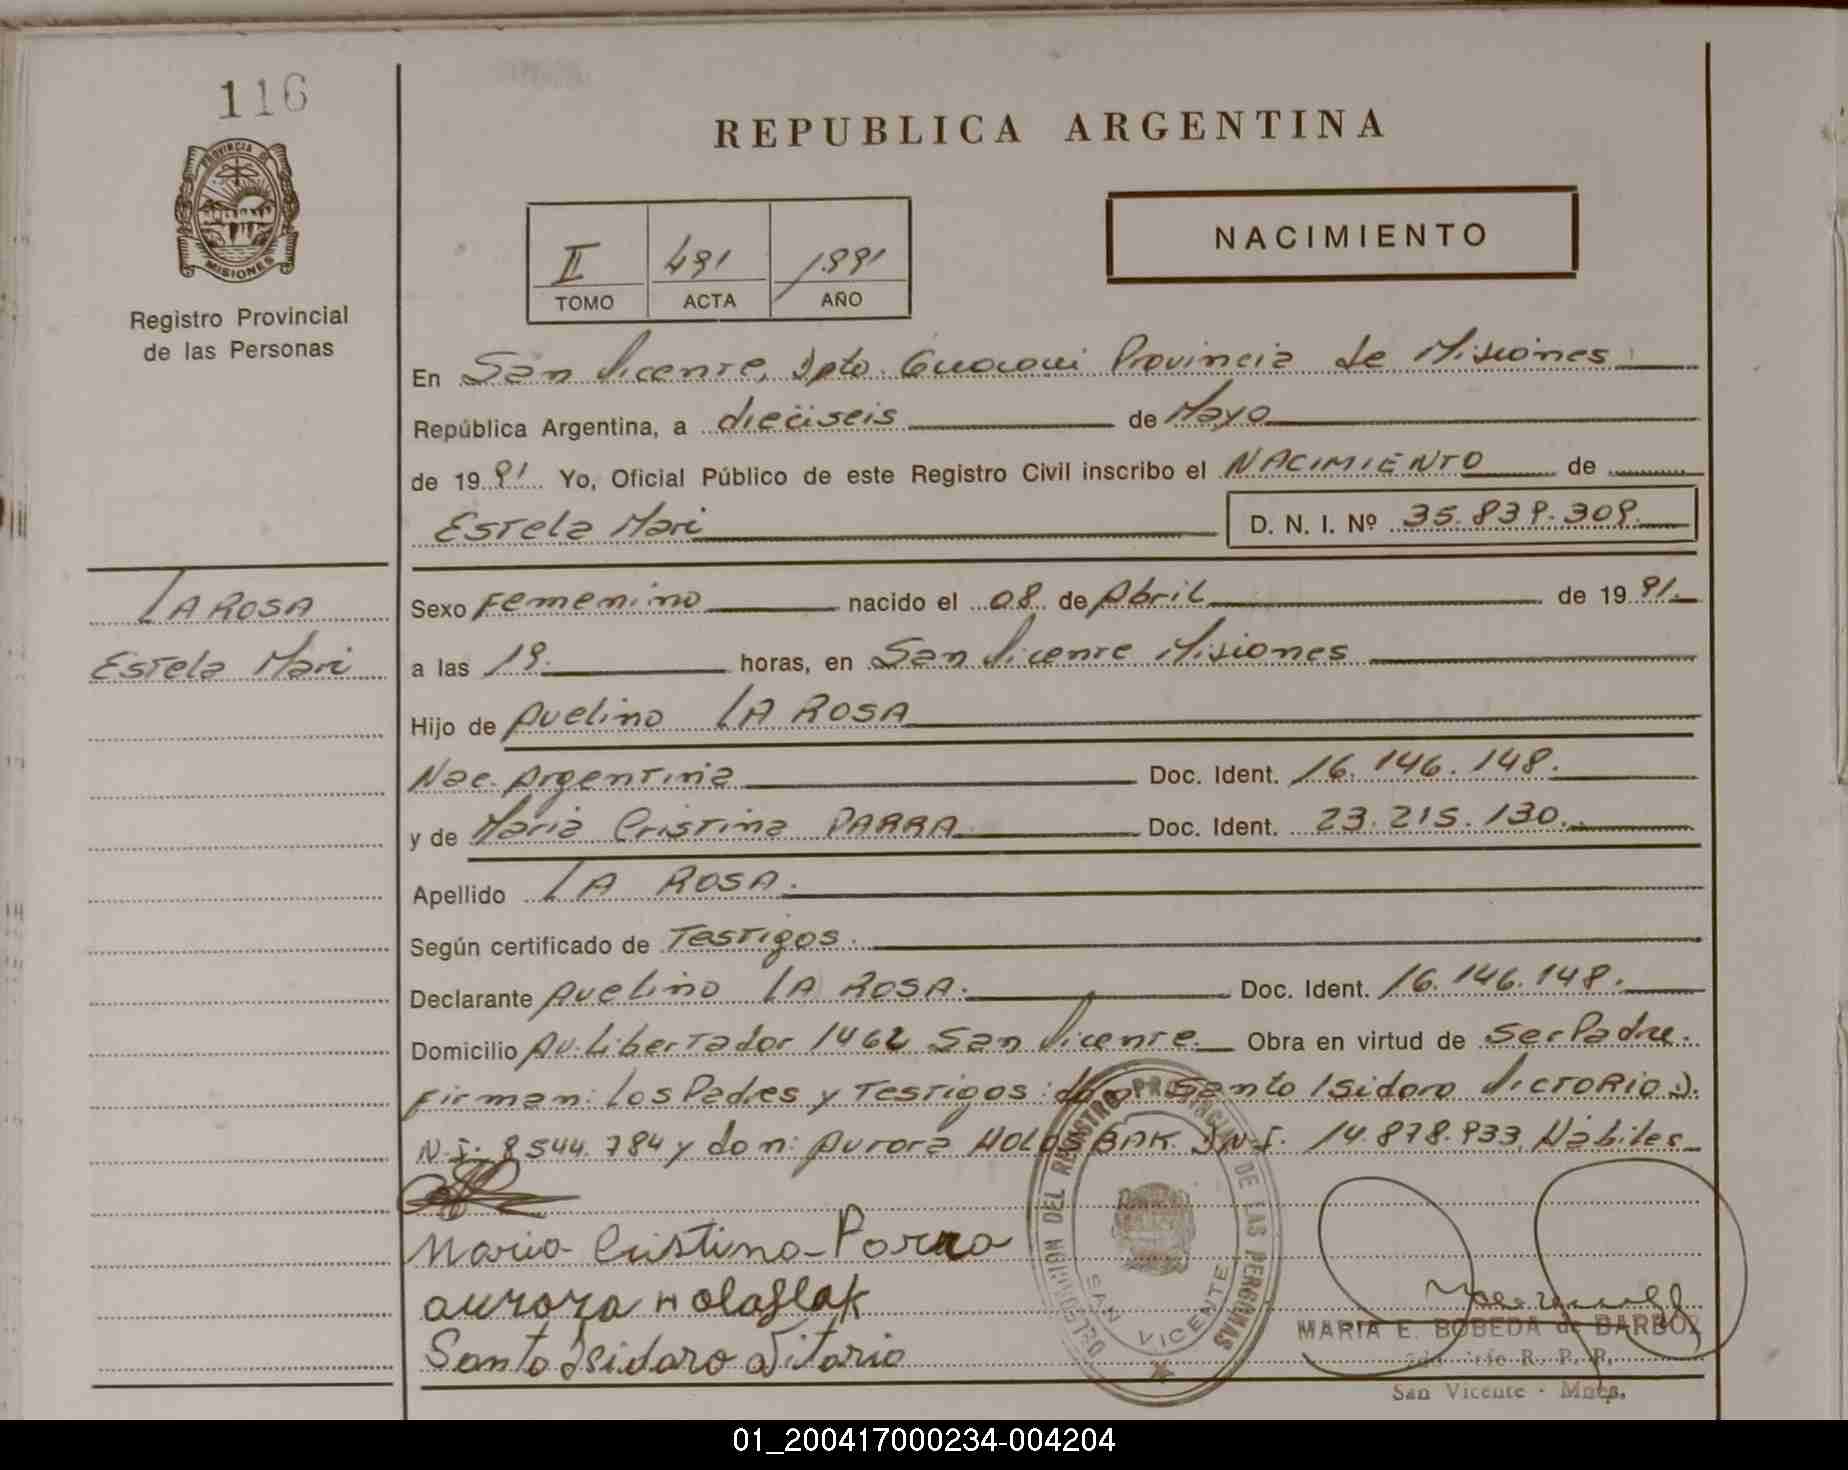 116
PROVINCIA DE
MISIONES
Registro Provincial
de las Personas
REPUBLICA ARGENTINA
II 491 1991
TOMO ACTA AÑO
NACIMIENTO
En San Vicente, Dpto. Guaraní Provincia de Misiones
República Argentina, a dieciseis de Mayo
de 19 91 Yo, Oficial Público de este Registro Civil inscribo el NACIMIENTO de
Estela Mari D. N. I. Nº 35.839.309.
LA ROSA
Estela Mari
Sexo Femenino nacido el 08 de Abril de 19 91.
a las 19. horas, en San Vicente Misiones
Hijo de Avelino LA ROSA
Nac. Argentina Doc. Ident. 16.146.148.
y de Maria Cristina PARRA Doc. Ident. 23.215.130.
Apellido LA ROSA.
Según certificado de Testigos.
Declarante Avelino LA ROSA. Doc. Ident. 16.146.148.
Domicilio Av. Libertador 1462 San Vicente. Obra en virtud de Ser Padre.
Firman: los Padres y Testigos: don Santo Isidoro VICTORIO D.
N.I. 8544.784 y don: Aurora HOLOSBAK D.N.I. 14.878.933, Hábiles
Maria Cristina Parra
aurora Holaslak
Santo Isidoro Vitorio
DELEGACION DEL REGISTRO PROVINCIAL DE LAS PERSONAS
SAN VICENTE
MARIA E. BOBEDA de BARBOZ
R. P. P.
San Vicente - Mnes.
01_200417000234-004204